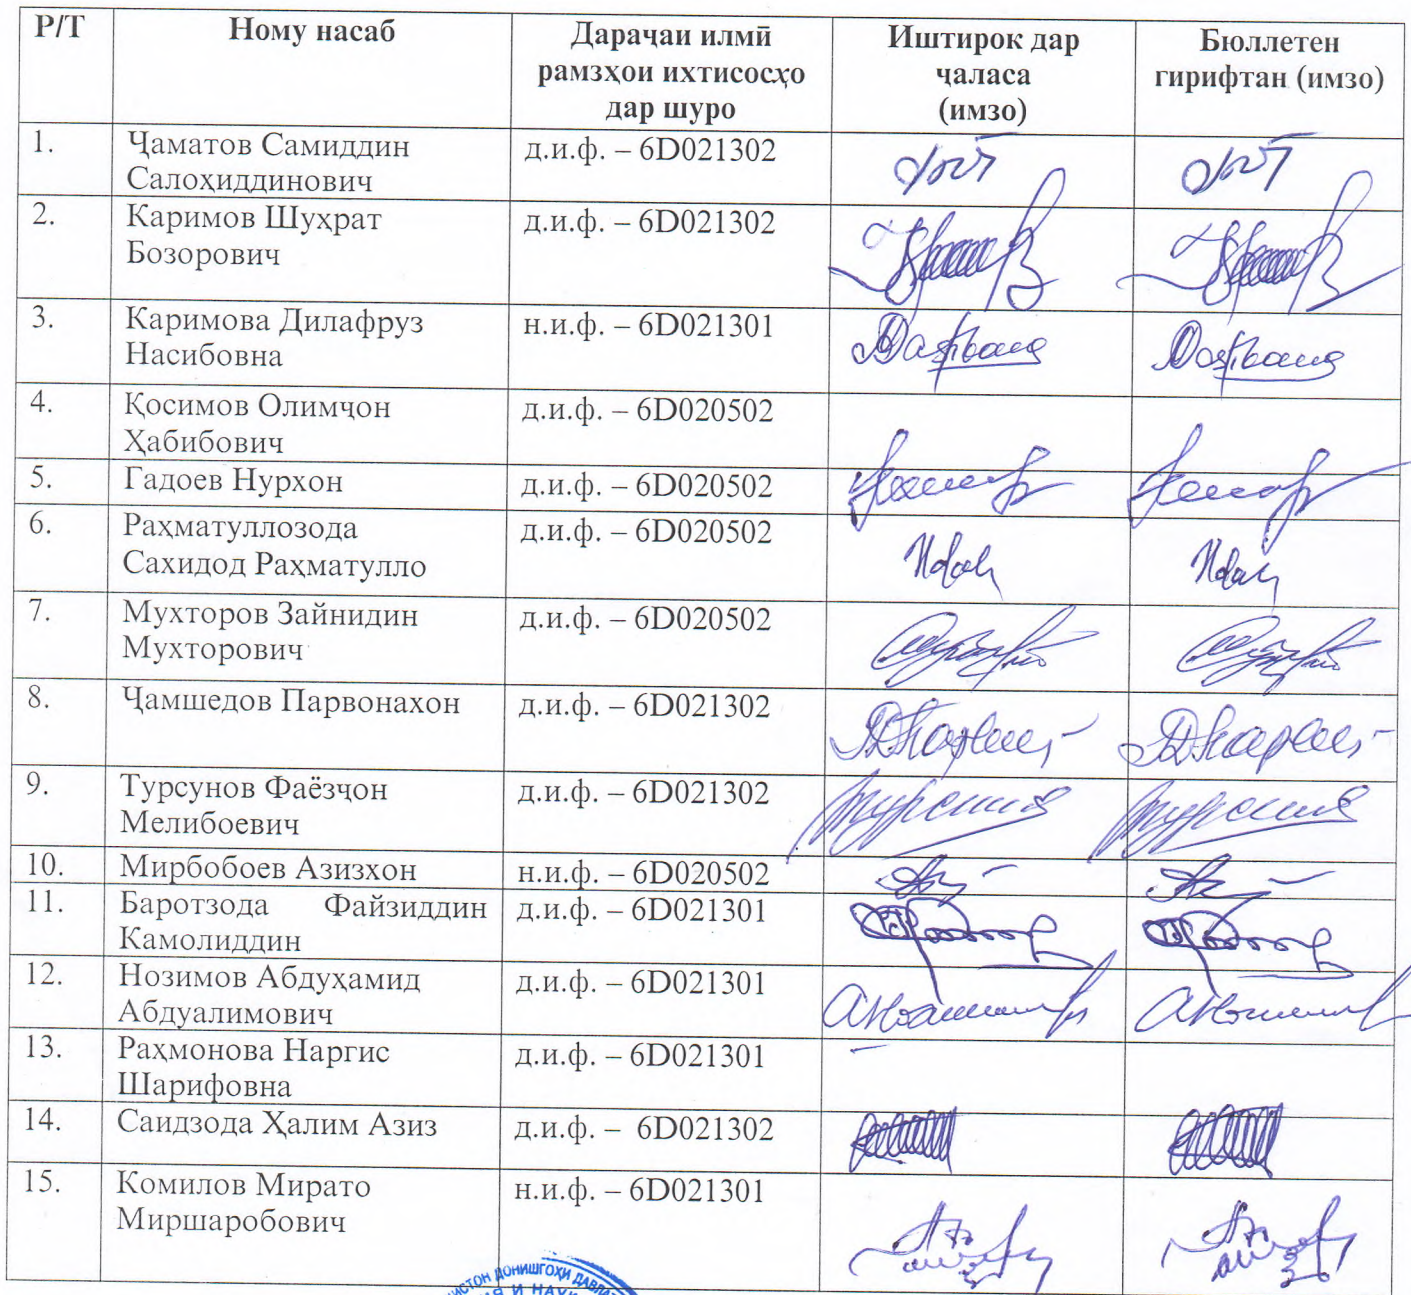 Р/Т Ному насаб Дараҷаи илмӣ рамзҳои ихтисосҳо дар шуро Иштирок дар ҷаласа (имзо) Бюллетен гирифтан (имзо)
1. Ҷаматов Самиддин Салоҳиддинович д.и.ф. – 6D021302
2. Каримов Шуҳрат Бозорович д.и.ф. – 6D021302
3. Каримова Дилафруз Насибовна н.и.ф. – 6D021301
4. Қосимов Олимҷон Ҳабибович д.и.ф. – 6D020502
5. Гадоев Нурхон д.и.ф. – 6D020502
6. Раҳматуллозода Сахидод Раҳматулло д.и.ф. – 6D020502
7. Мухторов Зайнидин Мухторович д.и.ф. – 6D020502
8. Ҷамшедов Парвонахон д.и.ф. – 6D021302
9. Турсунов Фаёзҷон Мелибоевич д.и.ф. – 6D021302
10. Мирбобоев Азизхон н.и.ф. – 6D020502
11. Баротзода Файзиддин Камолиддин д.и.ф. – 6D021301
12. Нозимов Абдуҳамид Абдуалимович д.и.ф. – 6D021301
13. Раҳмонова Наргис Шарифовна д.и.ф. – 6D021301
14. Саидзода Ҳалим Азиз д.и.ф. – 6D021302
15. Комилов Мирато Миршаробович н.и.ф. – 6D021301